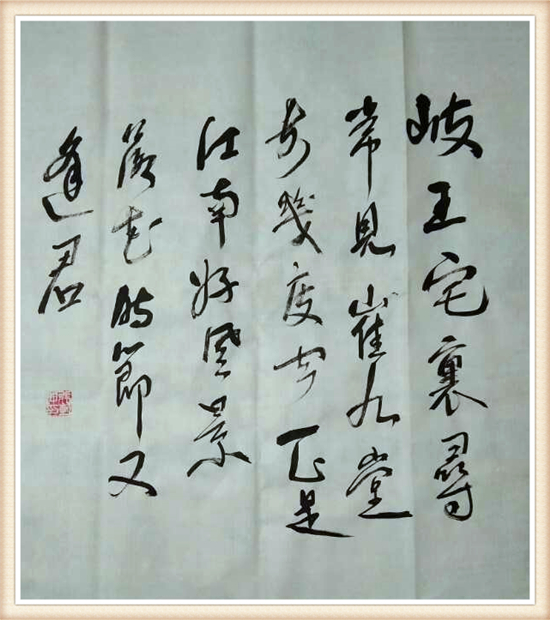 岐王宅裏尋
常見崔九堂
前幾度聞正是
江南好風景
落花時節又
逢君